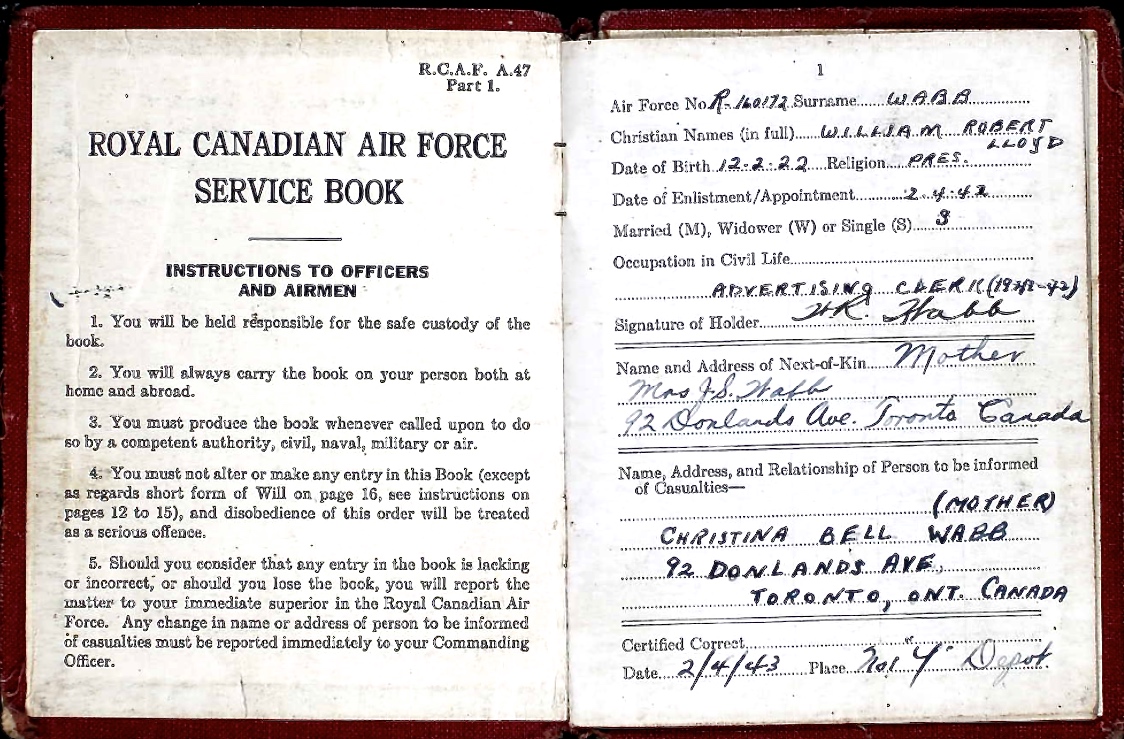 R.C.A.F. A.47
Part 1.
ROYAL CANADIAN AIR FORCE
SERVICE BOOK
INSTRUCTIONS TO OFFICERS
AND AIRMEN
1. You will be held responsible for the safe custody of the
book.
2. You will always carry the book on your person both at
home and abroad.
3. You must produce the book whenever called upon to do
so by a competent authority, civil, naval, military or air.
4. You must not alter or make any entry in this Book (except
as regards short form of Will on page 16, see instructions on
pages 12 to 15), and disobedience of this order will be treated
as a serious offence.
5. Should you consider that any entry in the book is lacking
or incorrect, or should you lose the book, you will report the
matter to your immediate superior in the Royal Canadian Air
Force. Any change in name or address of person to be informed
of casualties must be reported immediately to your Commanding
Officer.
1
Air Force No. R-160172 Surname WABB
Christian Names (in full) WILLIAM ROBERT
LLOYD
Date of Birth 12-2-22 Religion PRES.
Date of Enlistment/Appointment 2-4-42
Married (M), Widower (W) or Single (S) S
Occupation in Civil Life
ADVERTISING CLERK
Signature of Holder Wabb
Name and Address of Next-of-Kin Mother
Mrs J.S. Wabb
92 Donlands Ave. Toronto Canada
Name, Address, and Relationship of Person to be informed
of Casualties—
(MOTHER)
CHRISTINA BELL WABB
92 DONLANDS AVE,
TORONTO, ONT. CANADA
Certified Correct
Date 2/4/43 Place No1 "Y" Depot